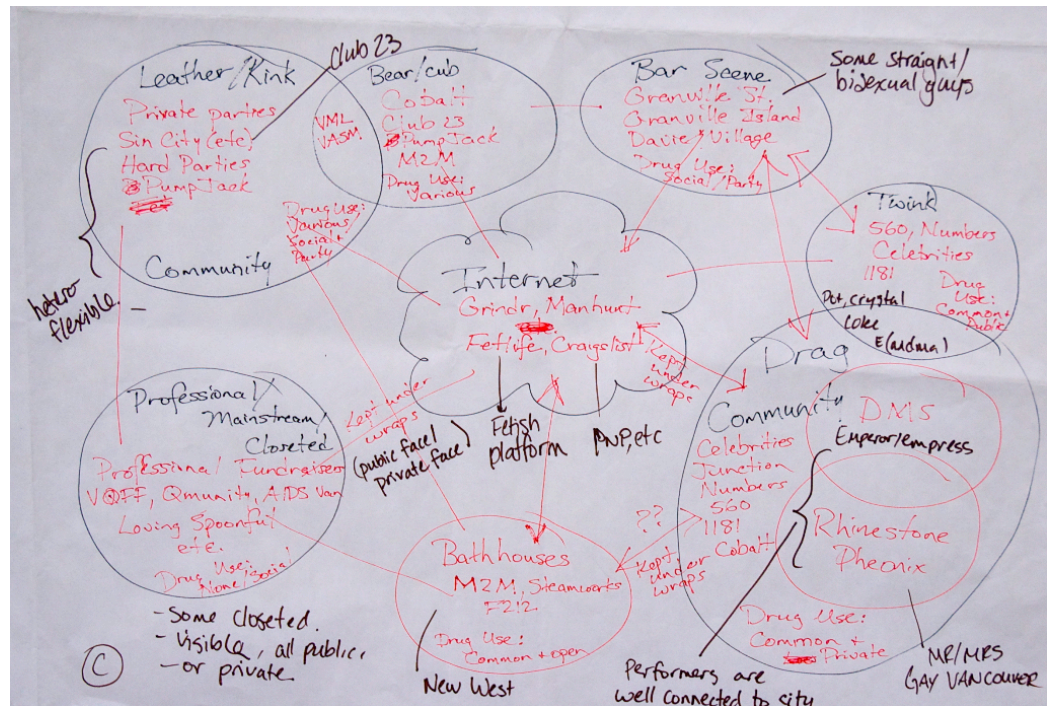 Club 23
Leather/Kink
Private parties
Sin City (etc)
Hard Parties
PumpJack
Drug Use:
Various
Social +
Party
Community
hetero
flexible
VML
VASM
Bear/cub
Cobalt
Club 23
PumpJack
M2M
Drug Use:
Various
Bar Scene
Granville St,
Granville Island
Davie Village
Drug Use:
Social/Party
Some straight/
bisexual guys
Twink
560, Numbers
Celebrities
1181
Drug
Use:
Common +
Public
Pot, crystal
Coke
Internet
Grindr, Manhunt
Fetlife, Craigslist
Kept
under
wraps
Kept under
wraps
(public face/
private face)
Fetish
platform
PNP, etc
Professional/
Mainstream/
Closeted
Professional Fundraiser
VQFF, Qmunity, AIDS Van
Loving Spoonful
etc.
Drug Use:
None/Social
- Some closeted.
- visible, all public,
- or private
C
Bathhouses
M2M, Steamworks
F212
Drug Use:
Common + open
New West
??
Kept
under
wraps
Drag
Community
Celebrities
Junction
Numbers
560
1181
Cobalt
DMS
Emperor/empress
Rhinestone
Pheonix
Drug Use:
Common +
Private
Performers are
well connected to
MR/MRS
GAY VANCOUVER